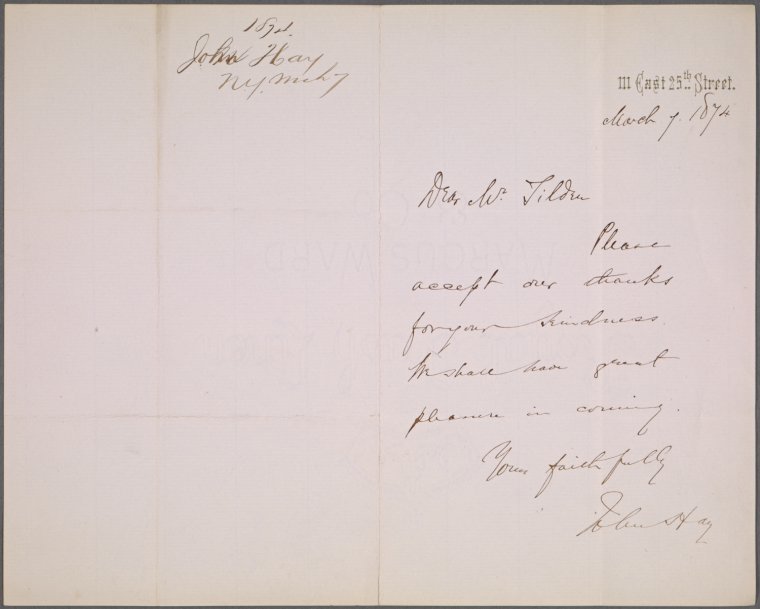 1874.
John Hay
N.Y. Mch 7
111 East 25th Street.
March 7. 1874
Dear Mr. Tilden
Please
accept our thanks
for your kindness.
We shall have great
pleasure in coming.
Yours faithfully
John Hay
MARCUS WARD